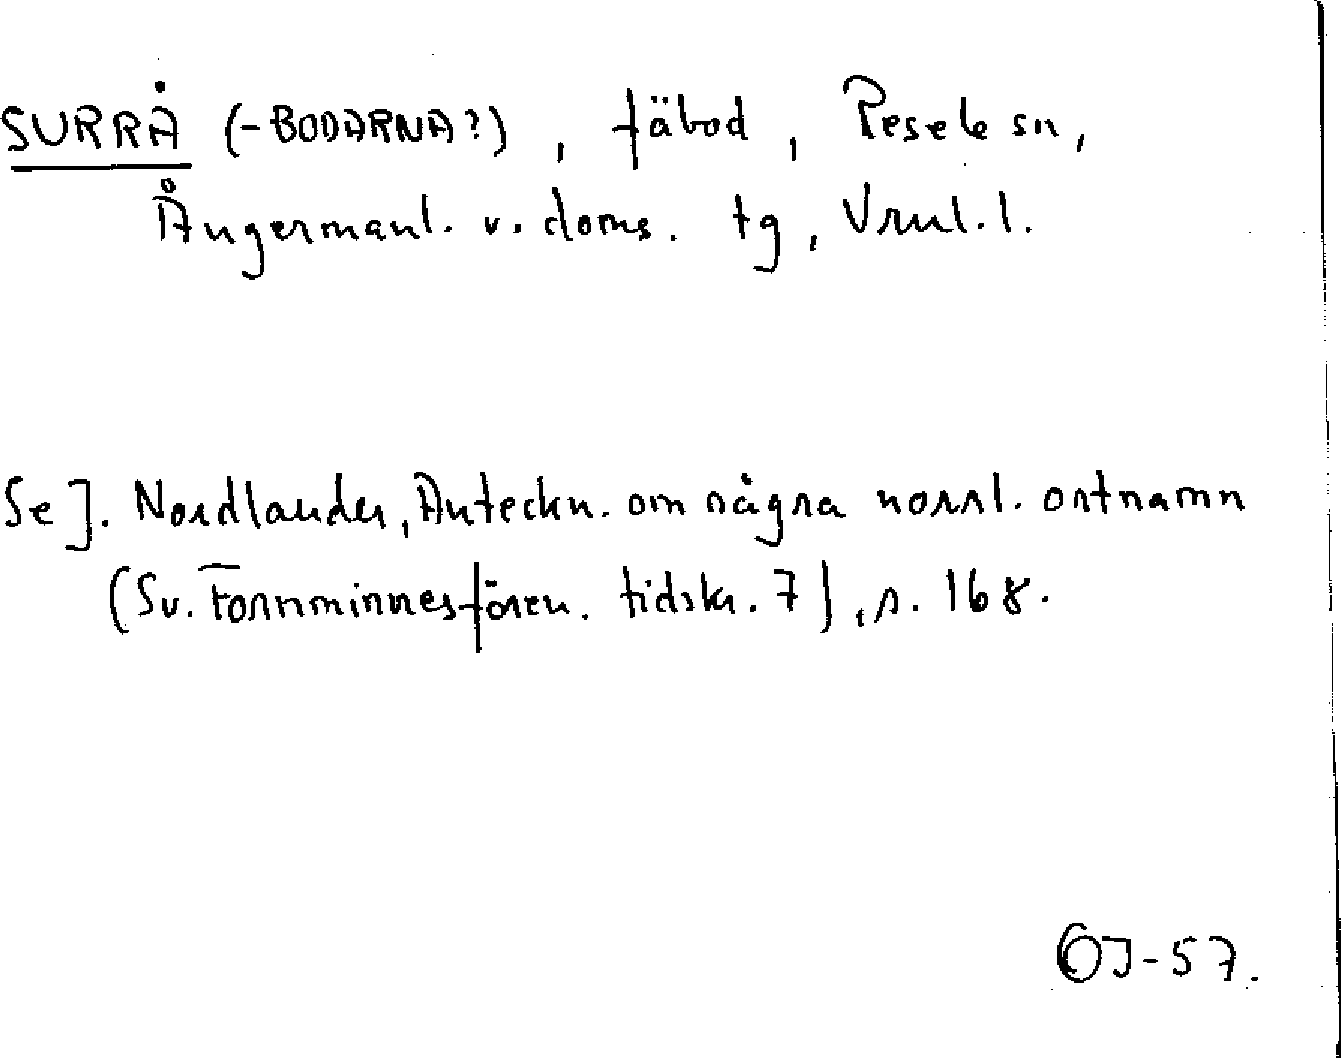 SURRÅ (-BODARNA?), fäbod, Resele sn,
Ångermanl. v. doms. tg, Vrnl. l.
Se J. Nordlander, Anteckn. om några norrl. ortnamn
(Sv. Fornminnesfören. tidskr. 7), s. 168.
OJ-57.